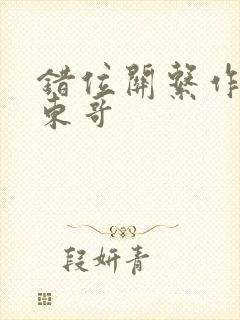 錯位關繫作
東哥
段妍青